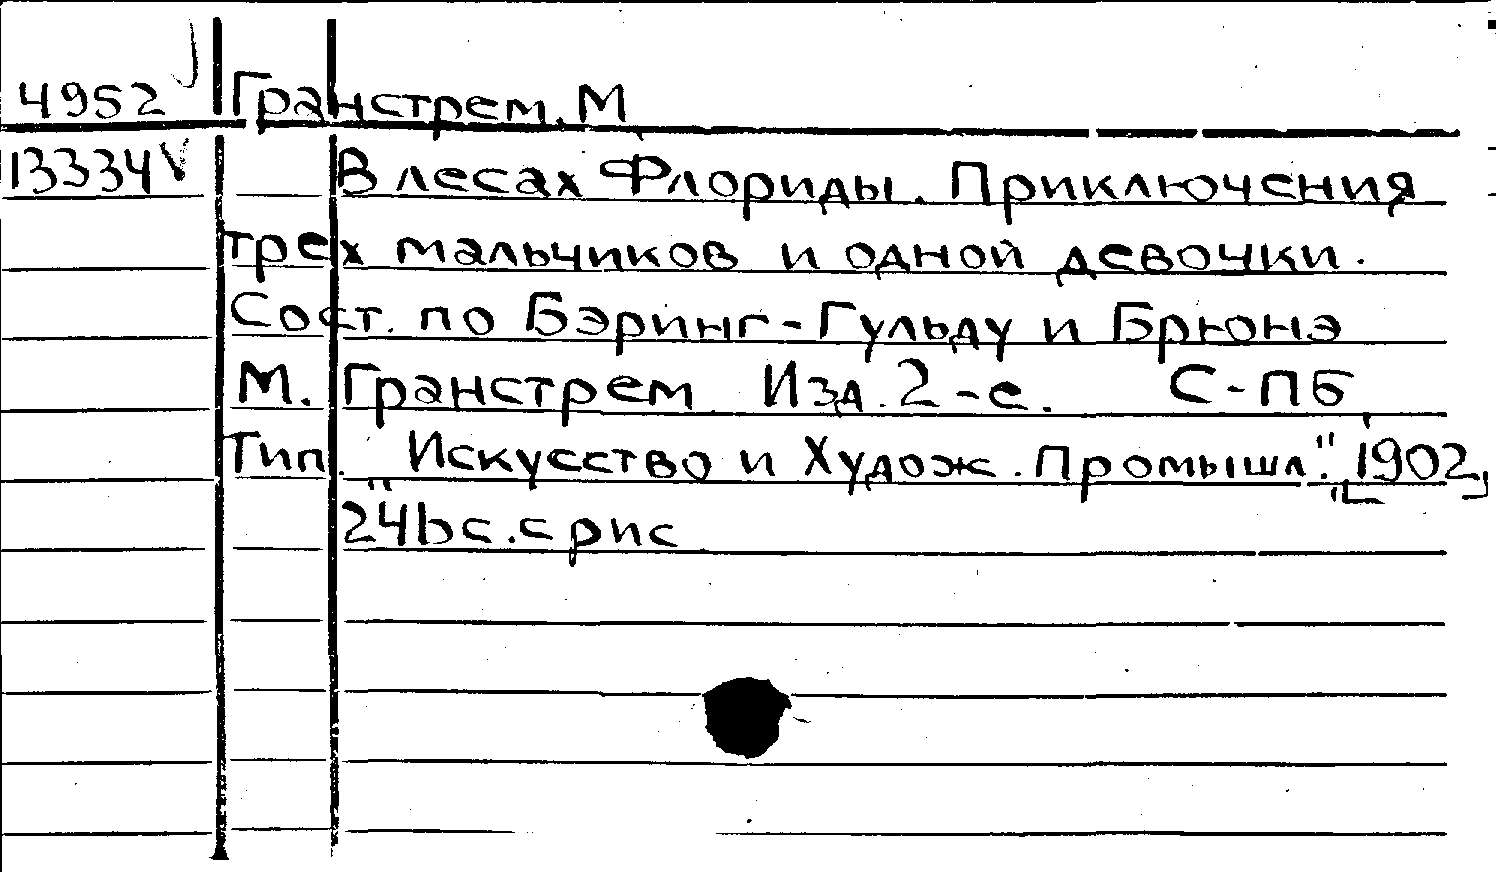 4952 Гранстрем. М
13334 В лесах Флориды. Приключения
трех мальчиков и одной девочки.
Сост. по Бэринг-Гульду и Брюнэ
М. Гранстрем Изд. 2-е. С-ПБ,
Тип. "Искусство и Худож. Промышл." [1902]
241 с. с рис